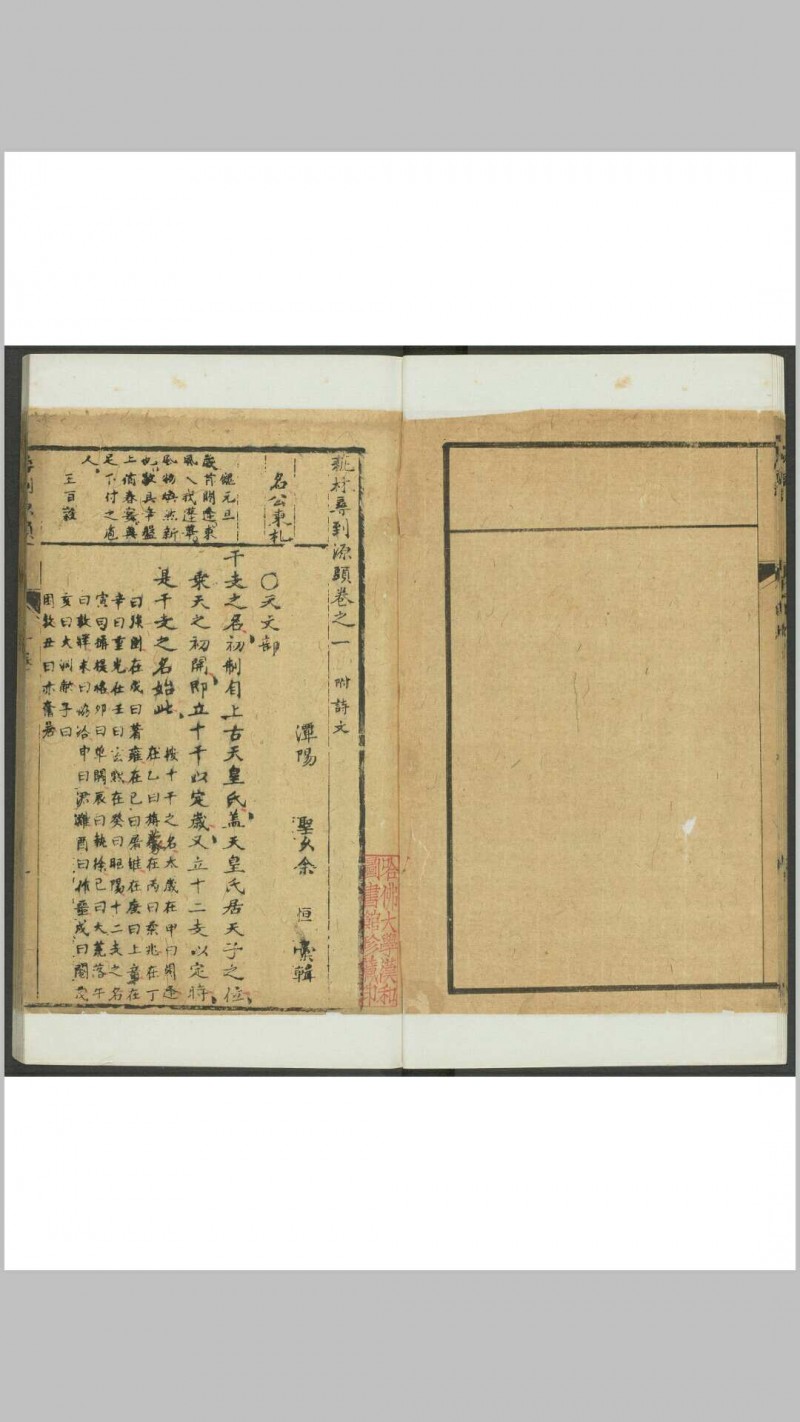 新材尋到源頭卷之一 附詩文
潭陽 聖父余 恒 彙輯
名公柬札
餽元旦
歲昔開逢東
風入我遂萬
風物煥然新
也敬具辛盤
上備春宴典
足下付之庖
人
王百穀
○天文部
干支之名初制自上古天皇氏蓋天皇氏居天子之位
乘天之初開即立十干以定歲又立十二支以定時
是干支之名始此
按十干之名太歲在甲曰閼逢
在乙曰旃蒙在丙曰柔兆在丁
曰強圉在戊曰著雍在己曰屠維在庚曰上章在
辛曰重光在壬曰玄黓在癸曰昭陽十二支之名
寅曰攝提格卯曰單閼辰曰執徐巳曰大荒落午
曰敦牂未曰協洽申曰涒灘酉曰作噩戌曰閹茂
亥曰大淵獻子曰
困敦丑曰赤奮若
哈佛大學漢和
圖書館珍藏印